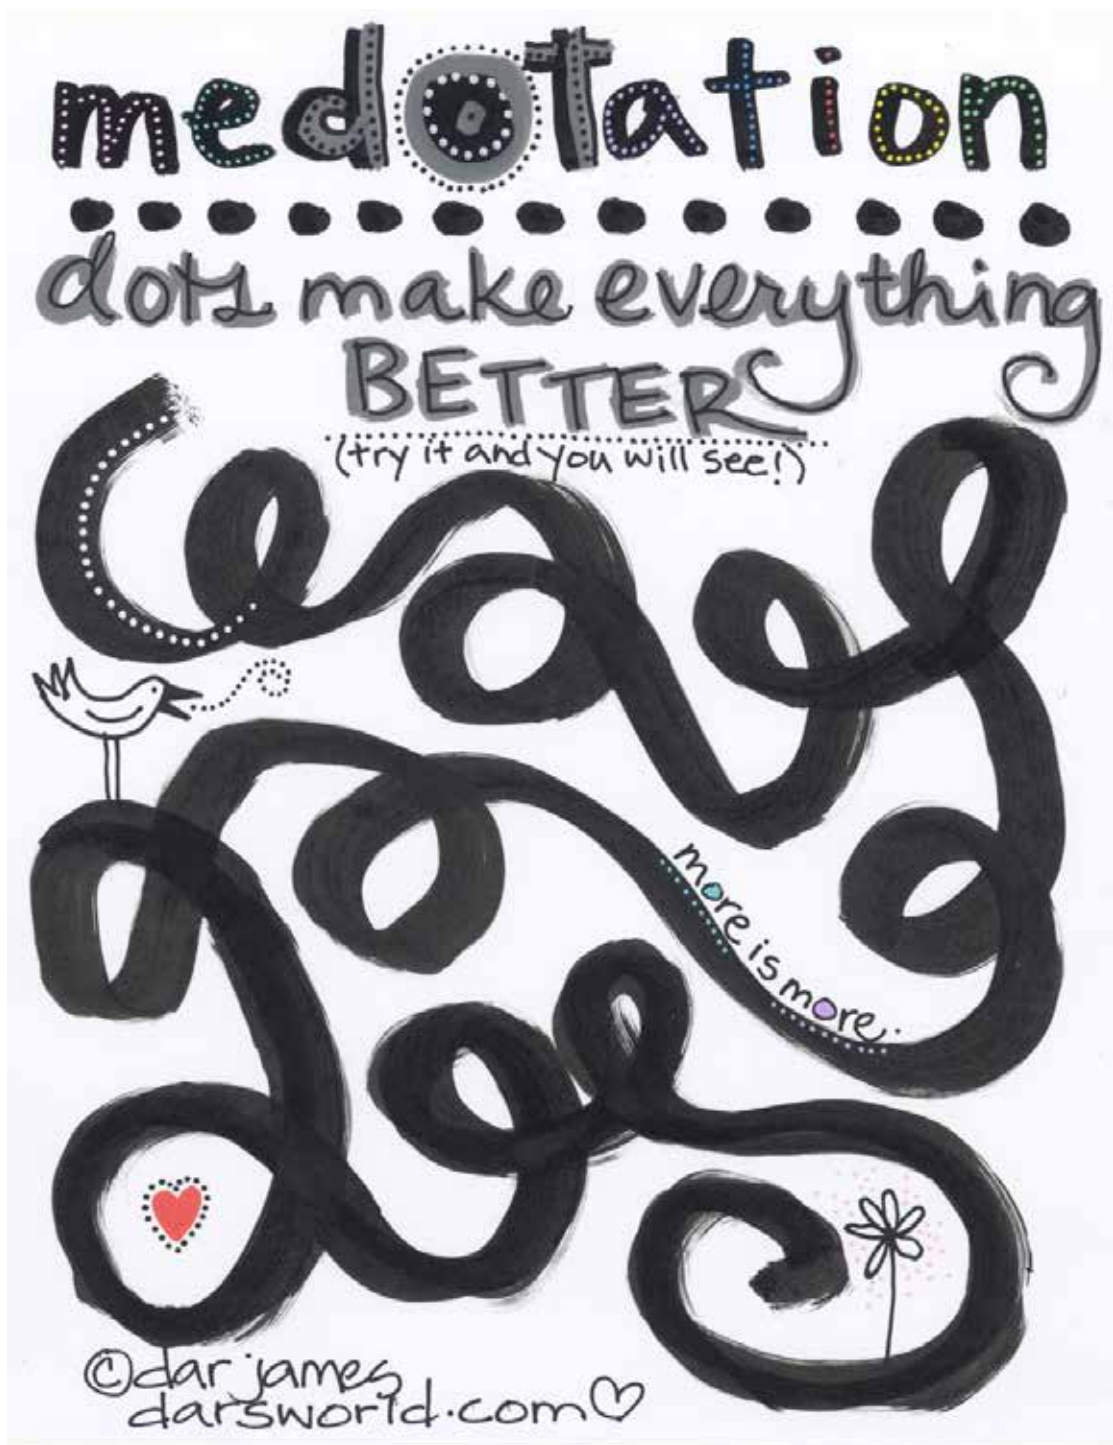 medotation
dots make everything
BETTER
(try it and you will see!)
more is more.
©dar james
darsworld.com